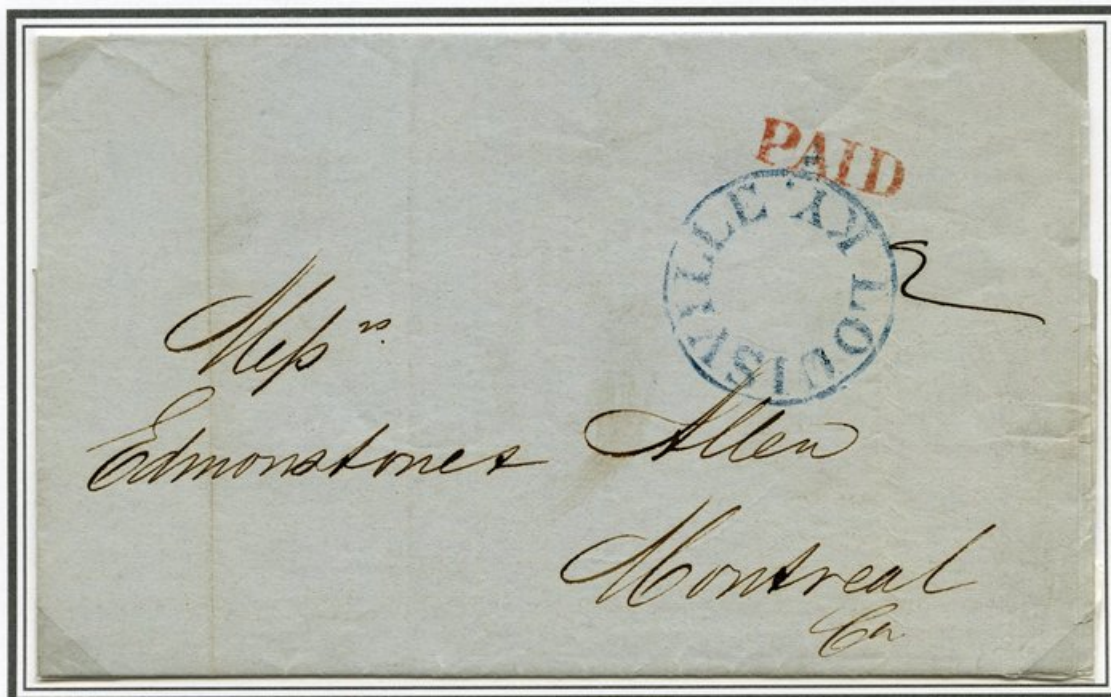 PAID
LOUISVILLE KY.
2
Messrs
Edmonstones Allen
Montreal
Ca